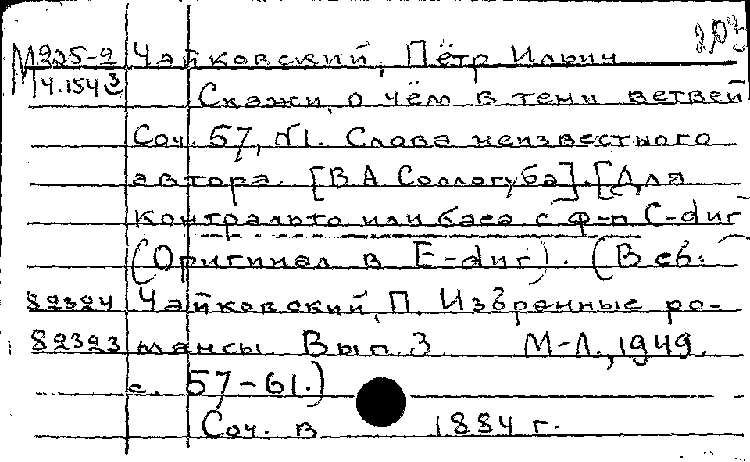 203
М 225-2 Чайковский, Пётр Ильич
14.154 3 Скажи, о чём в тени ветвей
Соч. 57, №1. Слова неизвестного
автора. [В А Соллогуба]. [Для
контральто или баса с ф-п C-dur
(Оригинал в E-dur). (В сб:
82324 Чайковский, П. Избранные ро-
82323 мансы Вып. 3 М-Л., 1949.
с. 57-61.)
Соч. в 1884 г.